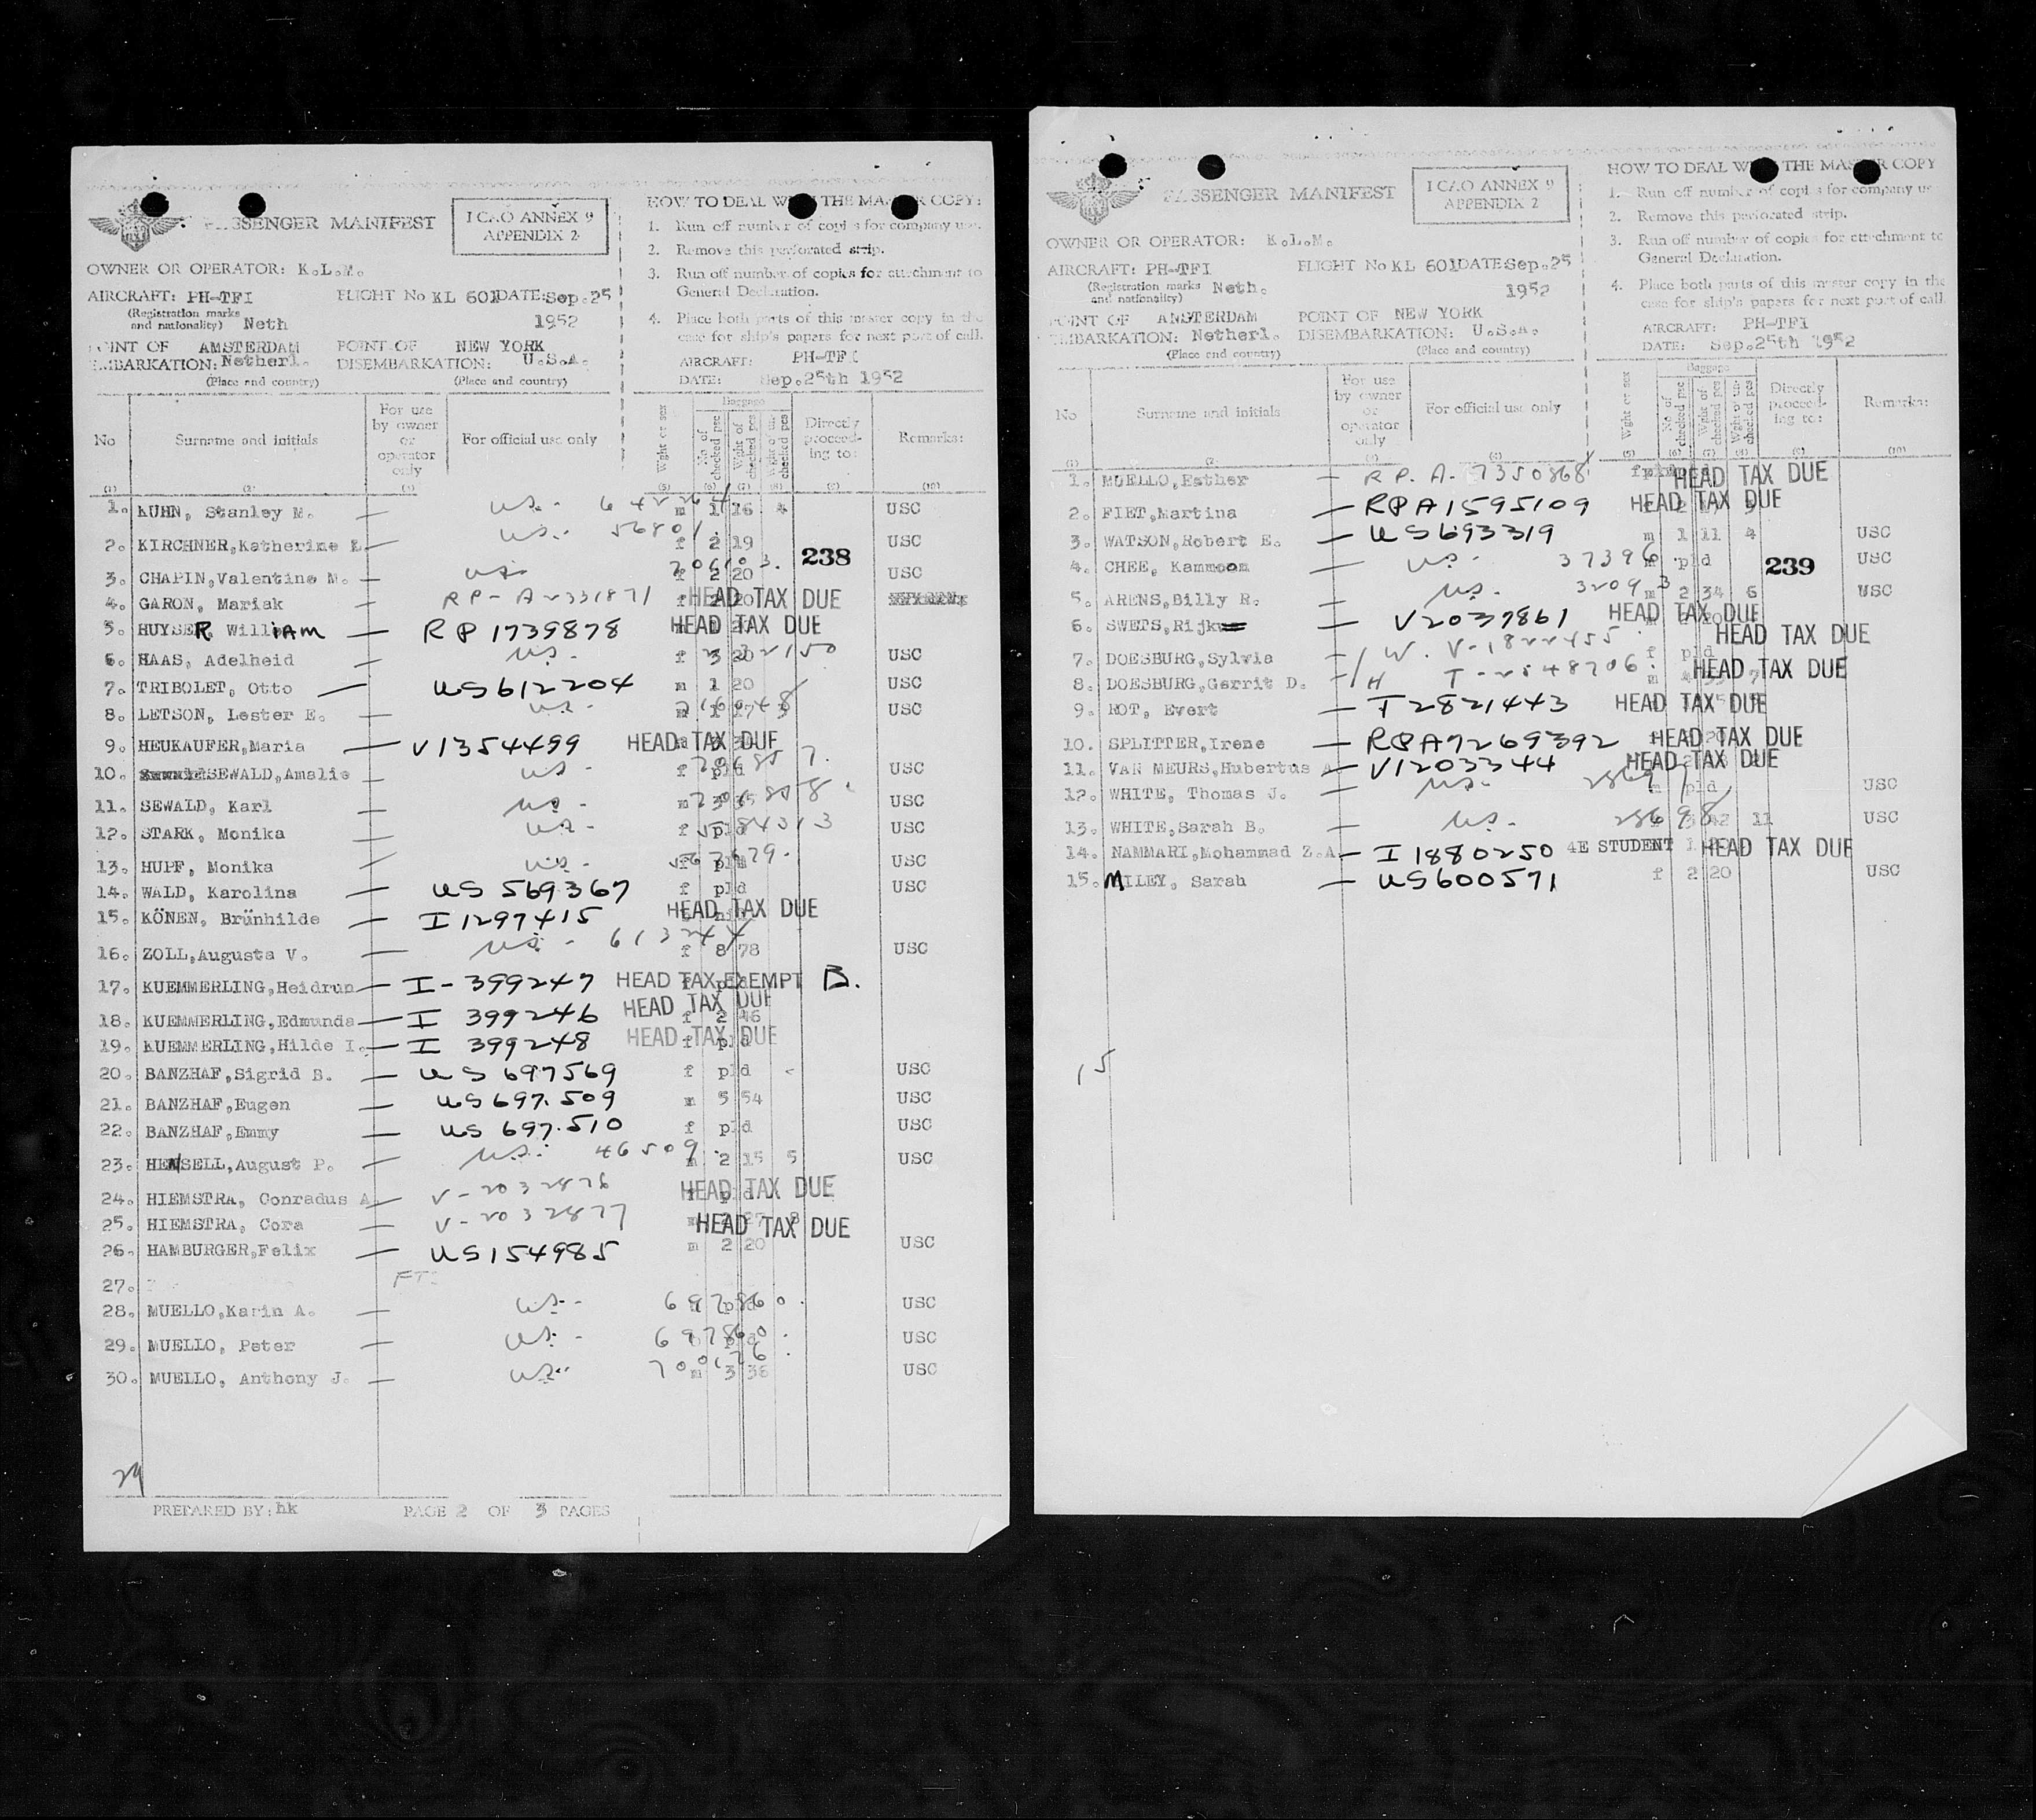 PASSENGER MANIFEST
I CAO ANNEX 9
APPENDIX 2
HOW TO DEAL THE COPY:
1. Run off number of copies for company use.
2. Remove this perforated strip.
3. Run off number of copies for attachment to
General Declaration.
4. Place both parts of this master copy in the
case for ship's papers for next port of call.
OWNER OR OPERATOR: K.L.M.
AIRCRAFT: PH-TFI FLIGHT No KL 601 DATE: Sep. 25
(Registration marks
and nationality) Neth 1952
POINT OF AMSTERDAM POINT OF NEW YORK
EMBARKATION: Netherl. DISEMBARKATION: U.S.A.
(Place and country) (Place and country)
AIRCRAFT: PH-TFI
DATE: Sep. 25th 1952
No Surname and initials For use by owner or operator only For official use only Wght or sex Baggage No of checked pcs Wght of checked pcs Directly proceeding to: Remarks:
(1) (2) (3) (5) (6) (7) (8) (9) (10)
1. KUHN, Stanley M. — US. m 1 16 4 USC
2. KIRCHNER, Katherine — US. 56801 f 2 19 USC
238
3. CHAPIN, Valentine M. — US f 2 20 USC
4. GARON, Mariak RP-A-2331871 f 2 20 HEAD TAX DUE
5. HUYSER, William — RP 1739878 HEAD TAX DUE
6. HAAS, Adelheid US. f 3 20 USC
7. TRIBOLET, Otto — US 612204 m 1 20 USC
8. LETSON, Lester E. US. m 1 17 3 USC
9. HEUKAUFER, Maria — V1354499 HEAD TAX DUE
10. SEWALD, Amalie US. f pld USC
11. SEWALD, Karl US. m 3 35 USC
12. STARK, Monika US. f pld USC
13. HUPF, Monika US. f USC
14. WALD, Karolina — US 569367 f pld USC
15. KÖNEN, Brünhilde — I 1297415 HEAD TAX DUE
16. ZOLL, Augusta V. US. 613244 f 8 78 USC
17. KUEMMERLING, Heidrun — I-399247 HEAD TAX EXEMPT B.
18. KUEMMERLING, Edmunda — I 399246 HEAD TAX DUE f 2 46
19. KUEMMERLING, Hilde I. — I 399248 HEAD TAX DUE f pld
20. BANZHAF, Sigrid B. — US 697569 f pld USC
21. BANZHAF, Eugen — US 697.509 m 5 54 USC
22. BANZHAF, Emmy — US 697.510 f pld USC
23. HENSELL, August P. — US. 46509 m 2 15 5 USC
24. HIEMSTRA, Conradus A. — V-2032876 HEAD TAX DUE
25. HIEMSTRA, Cora — V-2032877 m 27 8 HEAD TAX DUE
26. HAMBURGER, Felix — US 154985 m 2 20 USC
27.
28. MUELLO, Karin A. — US. 697860. pld USC
29. MUELLO, Peter — US. 697860. pld USC
30. MUELLO, Anthony J. — US. m 3 36 USC
29
PREPARED BY: hk PAGE 2 OF 3 PAGES
PASSENGER MANIFEST
I CAO ANNEX 9
APPENDIX 2
HOW TO DEAL THE COPY
1. Run off number of copies for company
2. Remove this perforated strip.
3. Run off number of copies for attachment to
General Declaration.
4. Place both parts of this master copy in the
case for ship's papers for next port of call.
OWNER OR OPERATOR: K.L.M.
AIRCRAFT: PH-TFI FLIGHT No KL 601 DATE: Sep. 25
(Registration marks
and nationality) Neth. 1952
POINT OF AMSTERDAM POINT OF NEW YORK
EMBARKATION: Netherl. DISEMBARKATION: U.S.A.
(Place and country) (Place and country)
AIRCRAFT: PH-TFI
DATE: Sep. 25th 1952
No Surname and initials For use by owner or operator only For official use only Wght or sex Baggage No of checked pcs Wght of checked pcs Directly proceeding to: Remarks:
(1) (2) (3) (4) (5) (6) (7) (8) (9) (10)
1. MUELLO, Esther — RP. A. 7350868 HEAD TAX DUE
2. FIET, Martina — RPA1595109 HEAD TAX DUE
3. WATSON, Robert E. — US693319 m 1 11 4 USC
4. CHEE, Kammoon — US. 37396 m pld USC
239
5. ARENS, Billy R. US. 32093 m 2 34 6 USC
6. SWETS, Rijk — V2037861 HEAD TAX DUE
7. DOESBURG, Sylvia — W. V-1822455 f pld HEAD TAX DUE
8. DOESBURG, Gerrit D. — H I-2548706 HEAD TAX DUE
9. ROT, Evert — I2821443 HEAD TAX DUE
10. SPLITTER, Irene — RPA7269392 HEAD TAX DUE
11. VAN MEURS, Hubertus A. — V1203344 HEAD TAX DUE
12. WHITE, Thomas J. US. m pld USC
13. WHITE, Sarah B. US. 28698 42 11 USC
14. NAMMARI, Mohammad Z.A. — I 1880250 4E STUDENT HEAD TAX DUE
15. MILEY, Sarah — US600571 f 2 20 USC
15